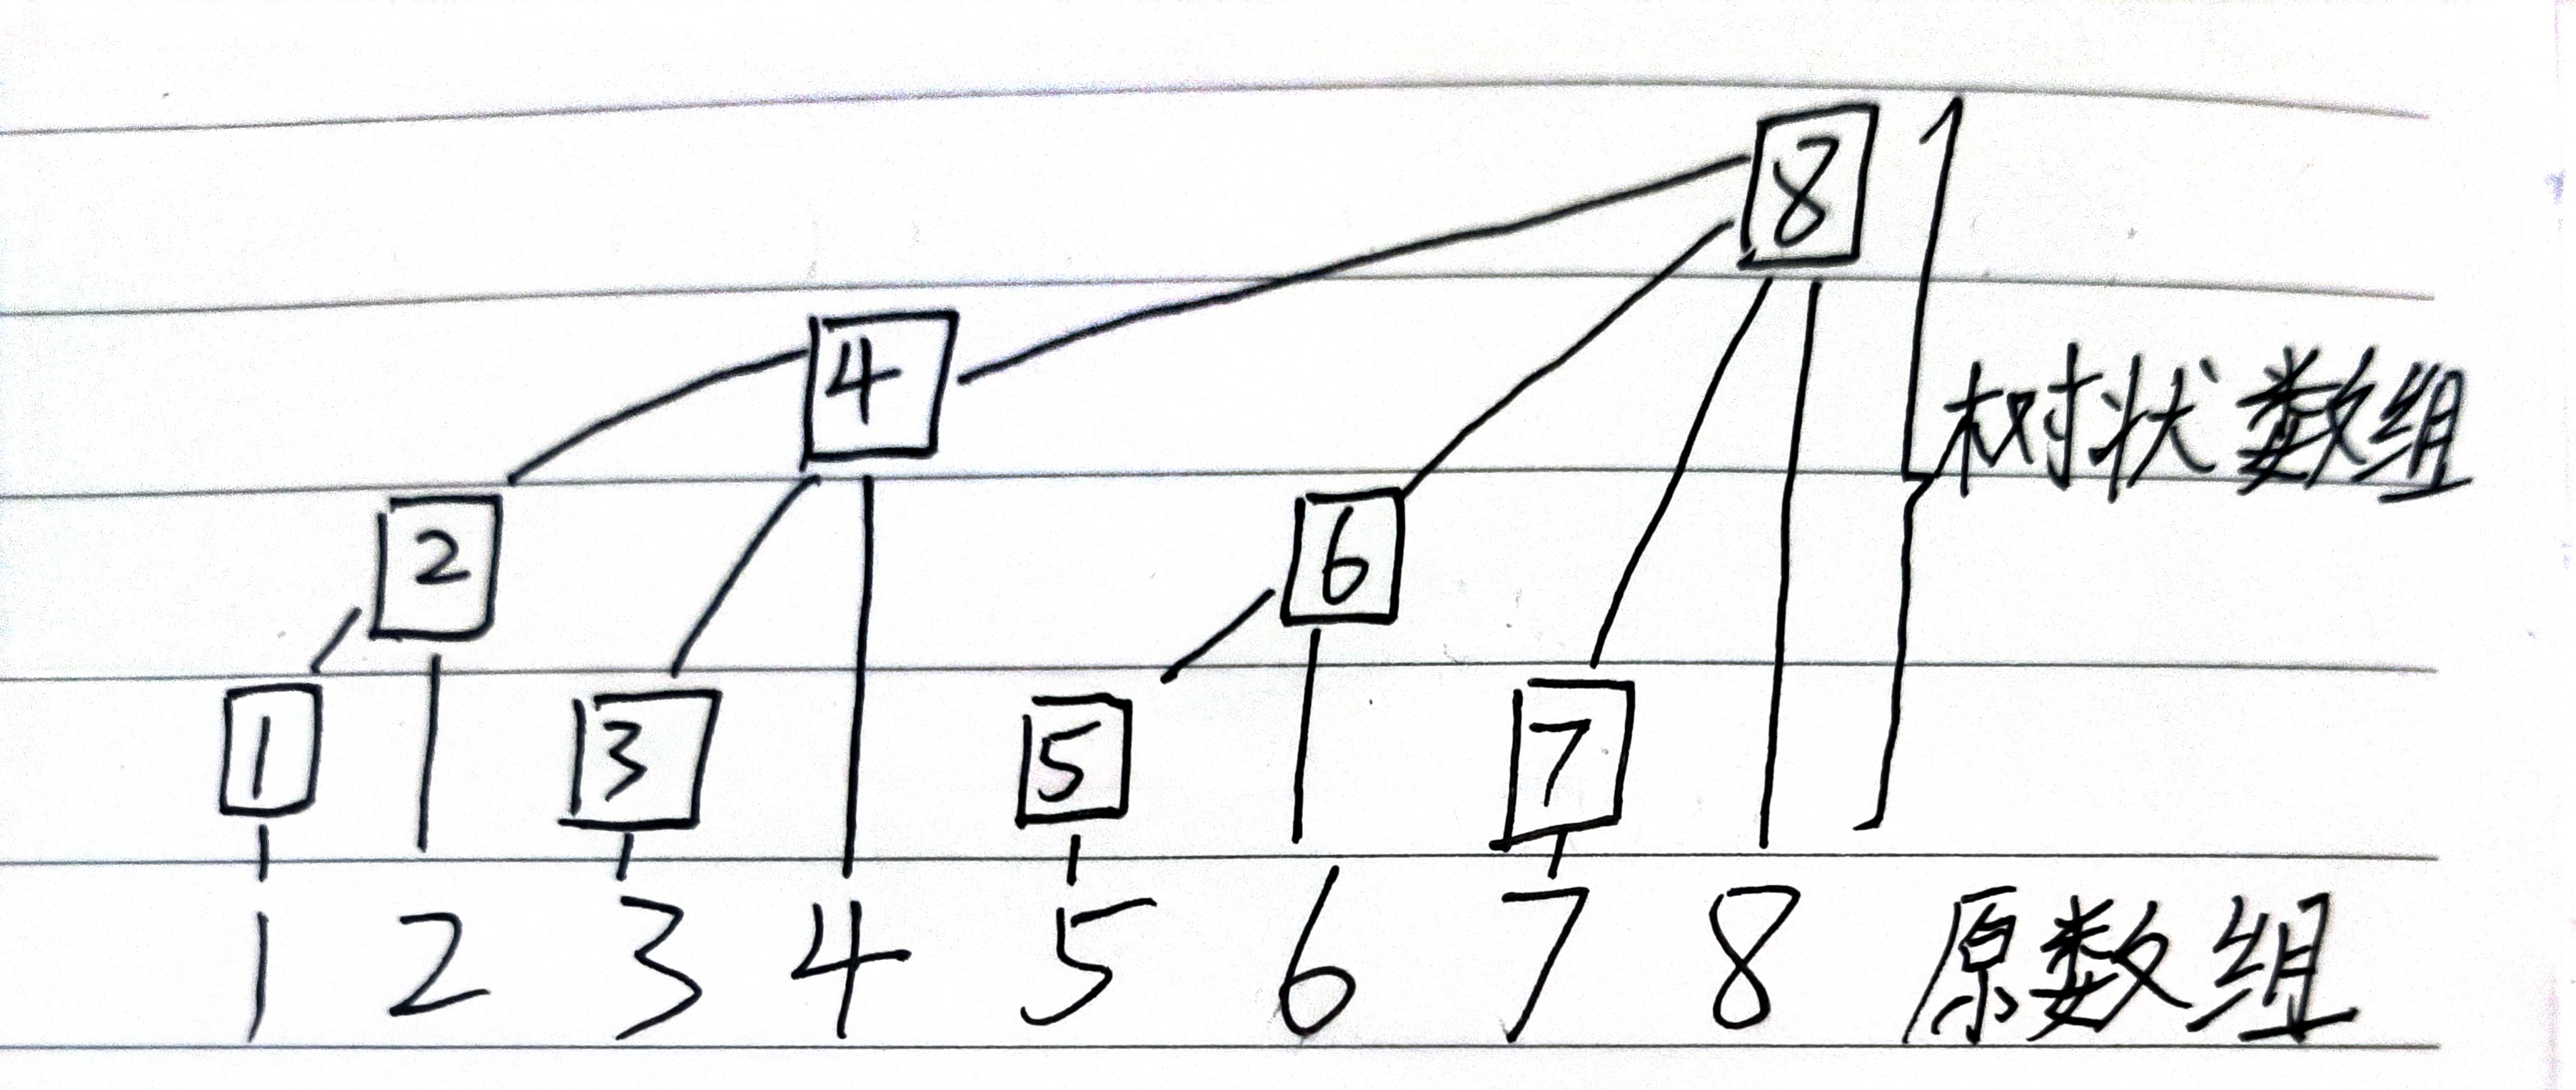 8
4
树状数组
2 6
1 3 5 7
1 2 3 4 5 6 7 8 原数组